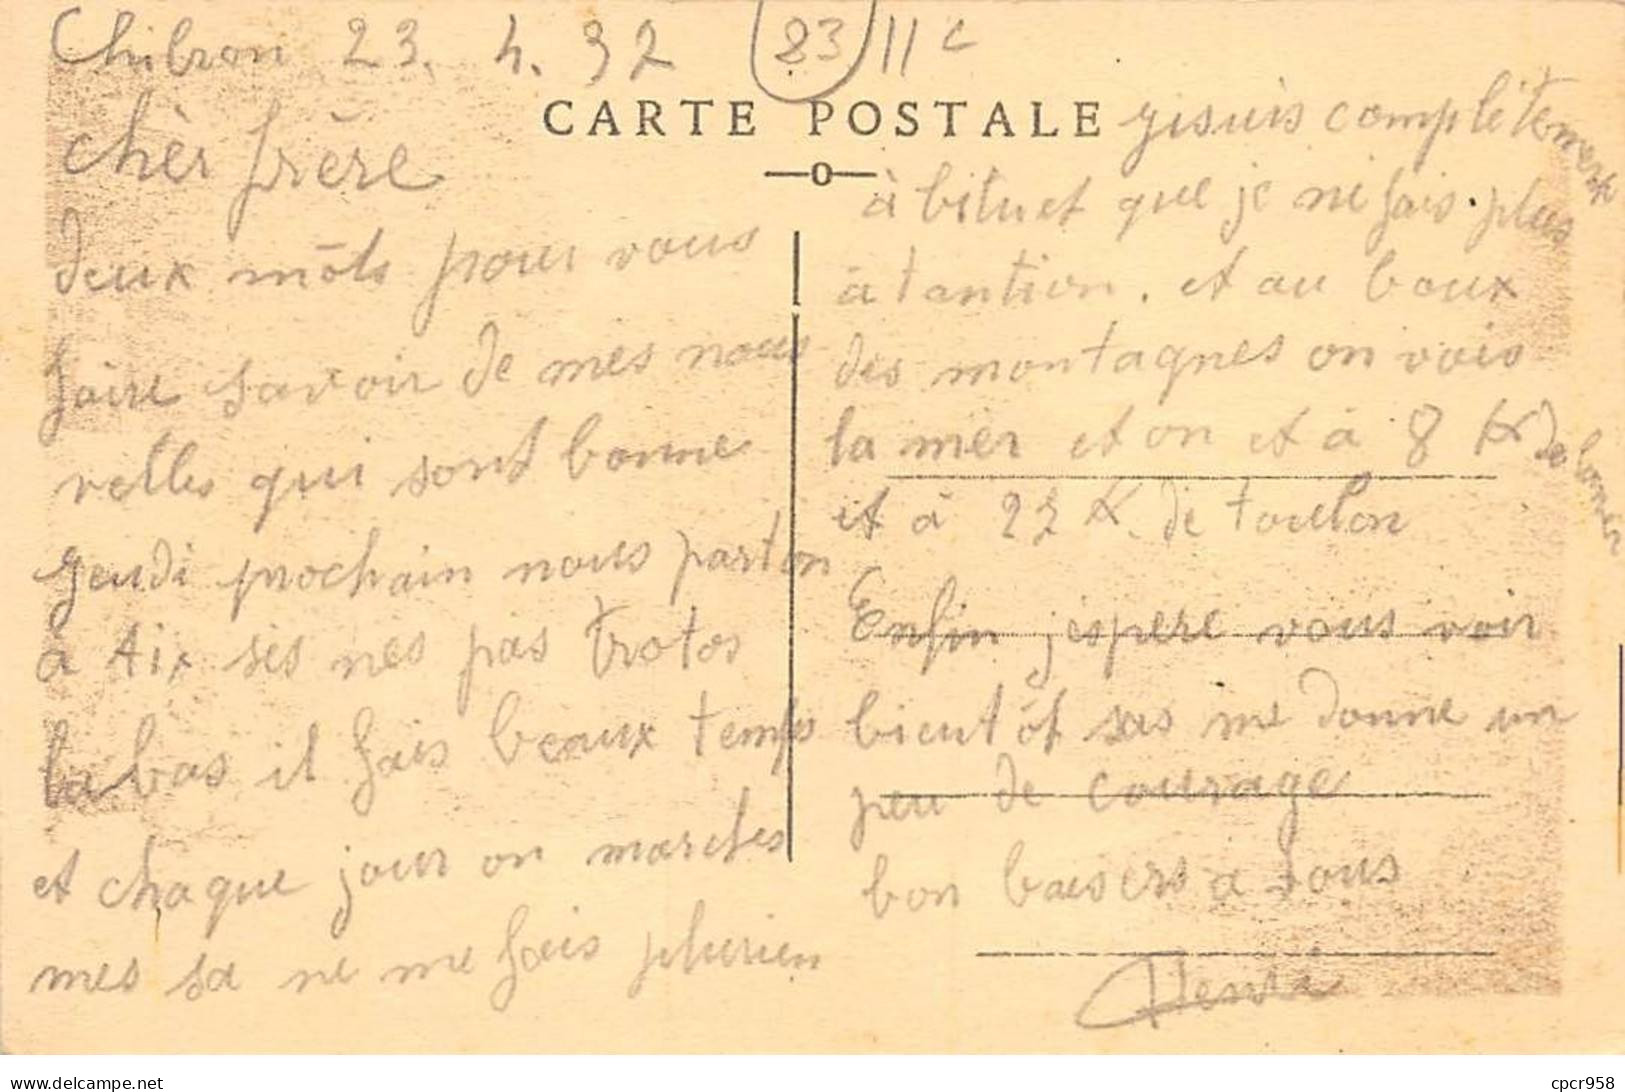 Chibron 23. 4. 32
83 11 c
CARTE POSTALE
chèr frère
deux môts pour vous
faire savoir de mes nous
velles qui sont bonne
geudi prochain nous parton
à Aix ses nes pas trotos
la bas il fais beaux temps
et chaque jour on marches
mes sa ne me fais plurien
jisuis complètement
à bituet que je ne fais plus
àtantion. et au boux
des montagnes on vois
la mer et on et à 8 K de
et à 22 K. de toulon
Enfin j'espere vous voir
bientôt sas me donne un
peu de courage
bon baisers a tous
Henri
cpcr958